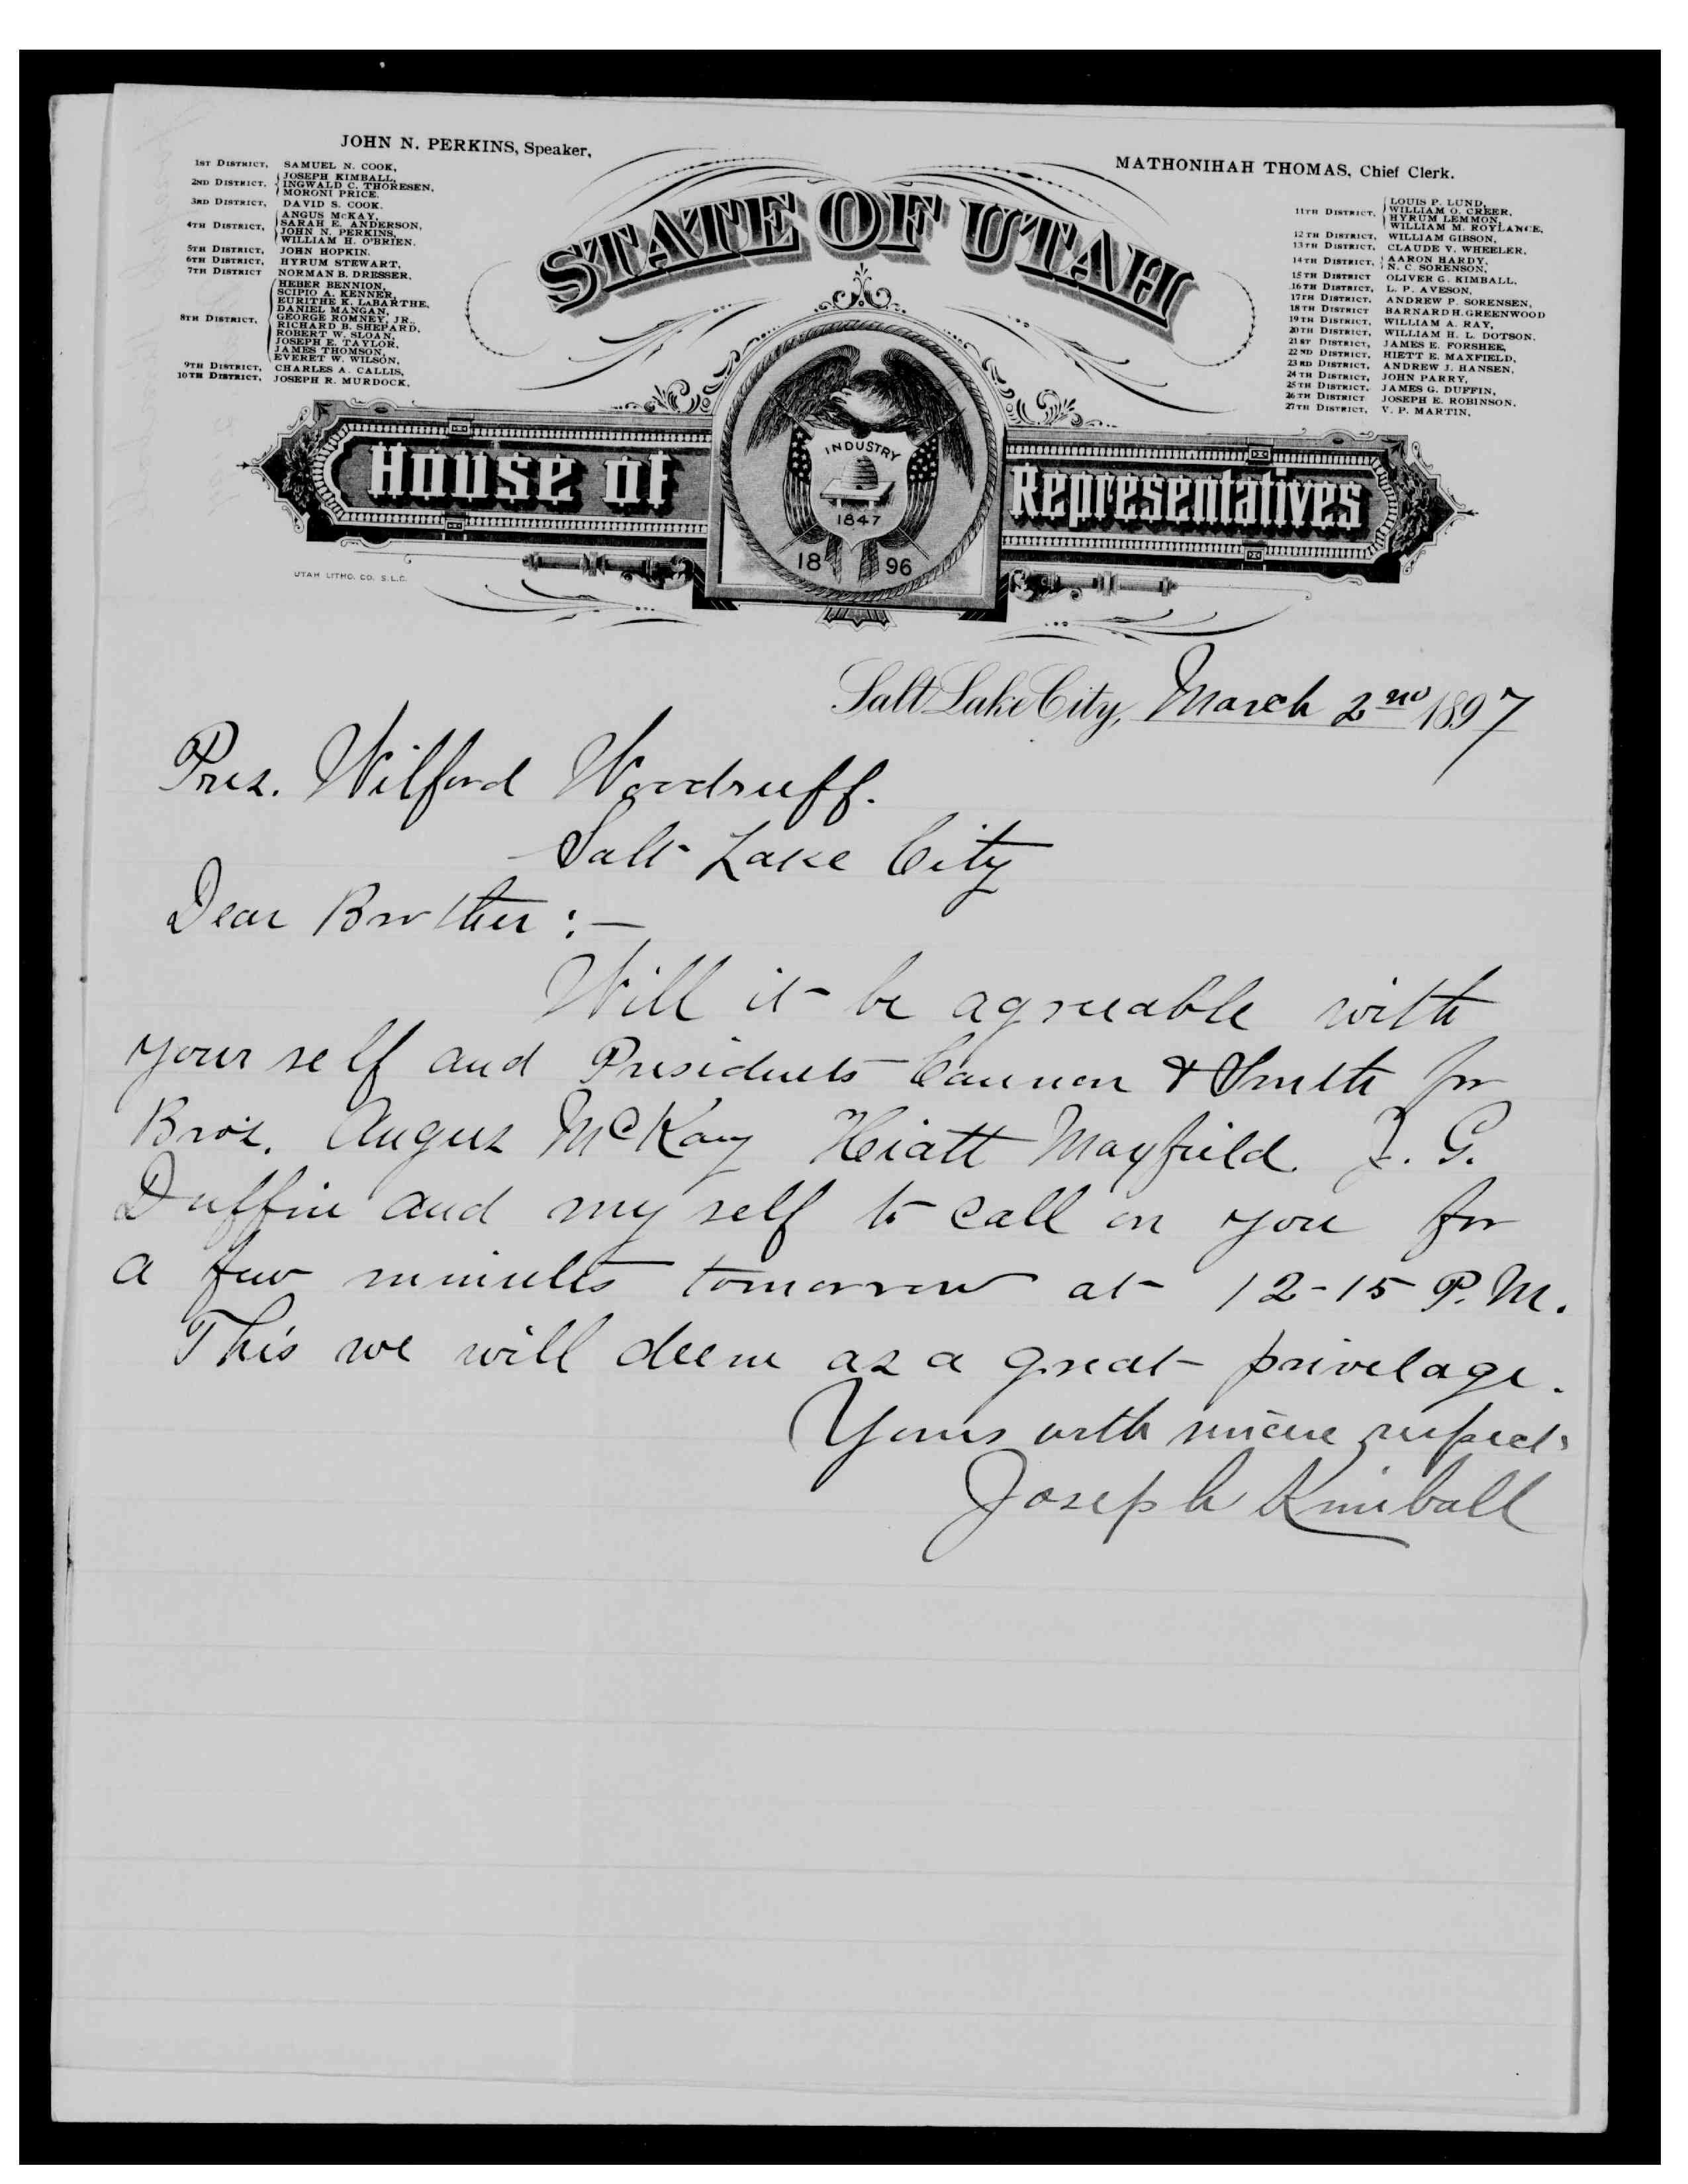 JOHN N. PERKINS, Speaker,
1ST DISTRICT, SAMUEL N. COOK,
2ND DISTRICT. JOSEPH KIMBALL,
INGWALD C. THORESEN,
MORONI PRICE.
3RD DISTRICT, DAVID S. COOK.
4TH DISTRICT, ANGUS McKAY,
SARAH E. ANDERSON,
JOHN N. PERKINS,
WILLIAM H. O'BRIEN.
5TH DISTRICT, JOHN HOPKIN.
6TH DISTRICT, HYRUM STEWART,
7TH DISTRICT NORMAN B. DRESSER,
8TH DISTRICT, HEBER BENNION,
SCIPIO A. KENNER,
EURITHE K. LaBARTHE,
DANIEL MANGAN,
GEORGE ROMNEY, JR.,
RICHARD B. SHEPARD,
ROBERT W. SLOAN,
JOSEPH E. TAYLOR,
JAMES THOMSON,
EVERET W. WILSON,
9TH DISTRICT, CHARLES A. CALLIS,
10TH DISTRICT, JOSEPH R. MURDOCK,
MATHONIHAH THOMAS, Chief Clerk.
11TH DISTRICT, LOUIS P. LUND,
WILLIAM O. CREER,
HYRUM LEMMON,
WILLIAM M. ROYLANCE,
12TH DISTRICT, WILLIAM GIBSON,
13TH DISTRICT, CLAUDE V. WHEELER,
14TH DISTRICT, AARON HARDY,
N. C. SORENSON,
15TH DISTRICT OLIVER G. KIMBALL,
16TH DISTRICT, L. P. AVESON,
17TH DISTRICT, ANDREW P. SORENSEN,
18TH DISTRICT BARNARD H. GREENWOOD
19TH DISTRICT, WILLIAM A. RAY,
20TH DISTRICT, WILLIAM H. L. DOTSON.
21ST DISTRICT, JAMES E. FORSHEE,
22ND DISTRICT, HIETT E. MAXFIELD,
23RD DISTRICT, ANDREW J. HANSEN,
24TH DISTRICT, JOHN PARRY,
25TH DISTRICT, JAMES G. DUFFIN,
26TH DISTRICT JOSEPH E. ROBINSON.
27TH DISTRICT, V. P. MARTIN,
STATE OF UTAH
House of Representatives
INDUSTRY
1847
18 96
UTAH LITHO. CO. S.L.C.
Salt Lake City, March 2nd 1897
Pres. Wilford Woodruff.
Salt Lake City
Dear Brother :—
Will it be agreeable with
your self and Presidents Cannon & Smith for
Bros. Angus McKay Hiatt Mayfield J. G.
Duffin and my self to call on you for
a few minutes tomorrow at 12-15 P.M.
This we will deem as a great privelage.
Yours with sincere respects
Joseph Kimball